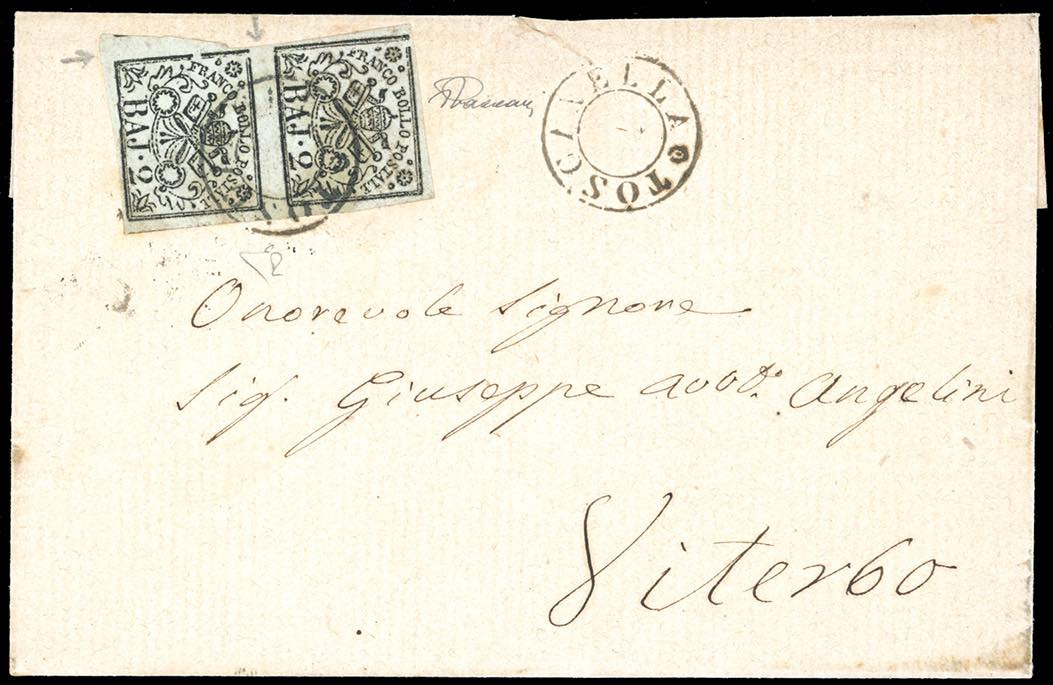 FRANCO BOLLO POSTALE
BAJ·2
FRANCO BOLLO POSTALE
BAJ·2
TOSCANELLA
Onorevole Signore
Sig. Giuseppe avvo. Angelini
Viterbo